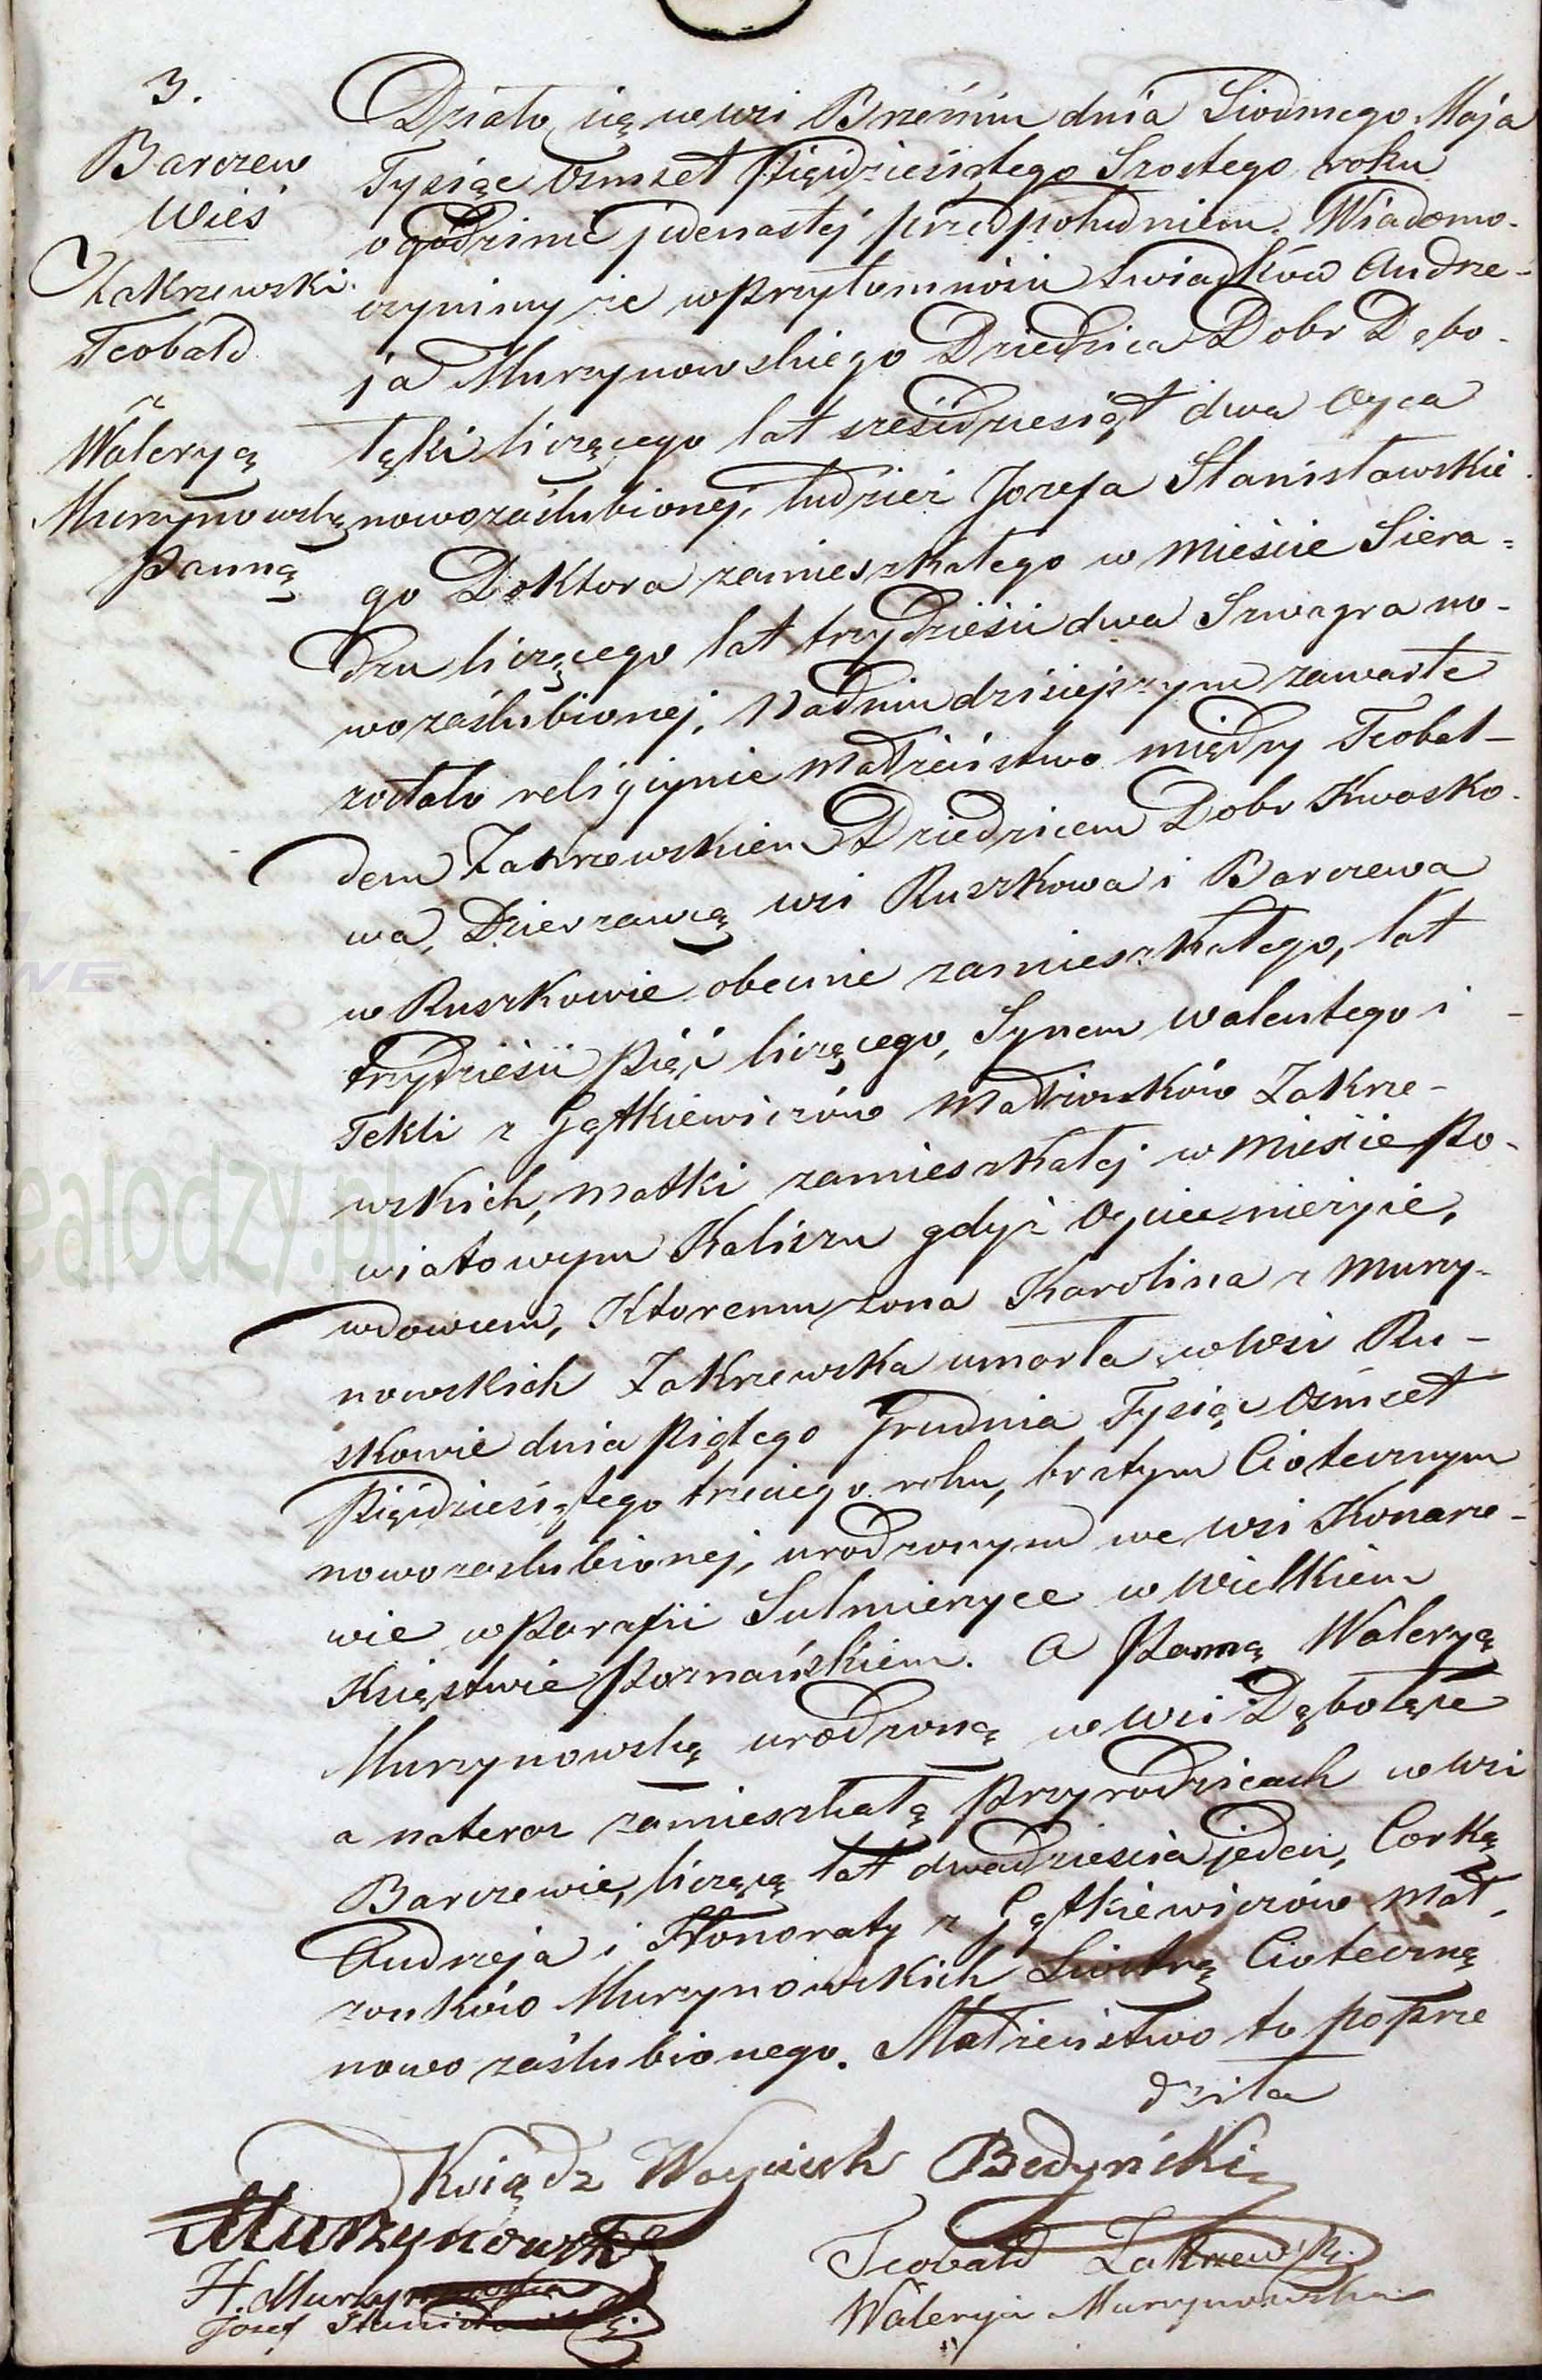 3.
Barczew
Wieś
Zakrzewski
Teobald
z
Waleryą
Murzynowską
Panną
Działo się we wsi Brzeźniu dnia Siodmego Maja
Tysiąc Ośmset Pięćdziesiątego Szostego roku
o godzinie jedenastej przed południem. Wiadomo
czynimy że w przytomności świadków Andrze-
ja Murzynowskiego Dziedzica Dobr Dębo-
łęki liczącego lat sześćdziesiąt dwa Oyca
nowozaślubionej, tudzież Jozefa Stanisławskie
go Doktora zamieszkałego w mieście Siera-
dzu liczącego lat trzydzieści dwa Szwagra no-
wozaślubionej, Na dniu dzisiejszym zawarte
zostało religijnie małżeństwo między Teobal-
dem Zakrzewskiem Dziedzicem Dobr Kwasko-
wa, Dzierzawcą wsi Ruszkowa i Barczewa
w Ruszkowie obecnie zamieszkałego, lat
trzydzieści pięć liczącego, Synem Walentego i
Tekli z Gątkiewiczów Małżonków Zakrze-
wskich, matki zamieszkałej w mieście Po-
wiatowym Kaliszu gdyż Oyciec nieżyie,
wdowcem, Ktoremu żona Karolina z Murzy-
nowskich Zakrzewska umarła we Wsi Ru-
szkowie dnia Piątego Grudnia Tysiąc Ośmset
Pięćdziesiątego trzeciego roku, bratym Ciotecznym
nowozaslubionej, urodzonym we wsi Konarze-
wie w Parafii Sulmierzyce w Wielkiem
Księstwie Poznańskiem. A Panną Waleryą
Murzynowską urodzoną we wsi Dębołęce
a nateraz zamieszkałą przy rodzicach we wsi
Barczewie, liczącą lat dwadzieścia jeden, Corką
Andrzeja i Honoraty z Gątkiewiczów Mał-
zonków Murzynowskich Siostrą Cioteczną
nowo zaślubionego. Małżeństwo to poprze
dziła
Ksiądz Woyciech Bedyński
Murzynowski
H. Murzynowska
Teobald Zakrzewski.
Józef Stanisławski
Waleryia Murzynowska
ealodzy.pl
WE